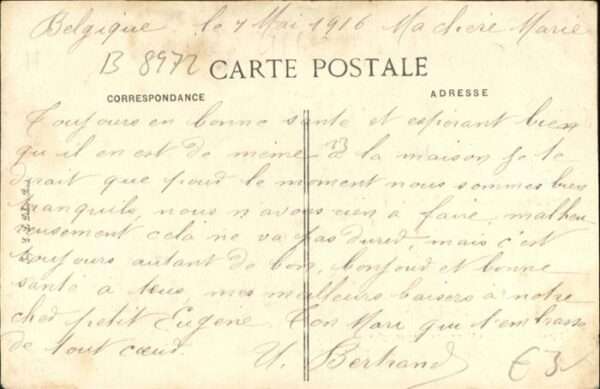 Belgique le 7 Mai 1916 Ma chère Marie
B 8972
CARTE POSTALE
CORRESPONDANCE
ADRESSE
Toujours en bonne santé et espérant bien
qu il en est de même à la maison je te
dirait que pour le moment nous sommes bien
tranquils, nous n avons rien a faire, malheu
reusement cela ne va pas durer, mais c'est
toujours autant de bon, bonjour et bonne
santé a tous, mes meilleurs baisers à notre
cher petit Eugene Ton Mari qui t'embrasse
de tout cœur. U. Bertrand
€3